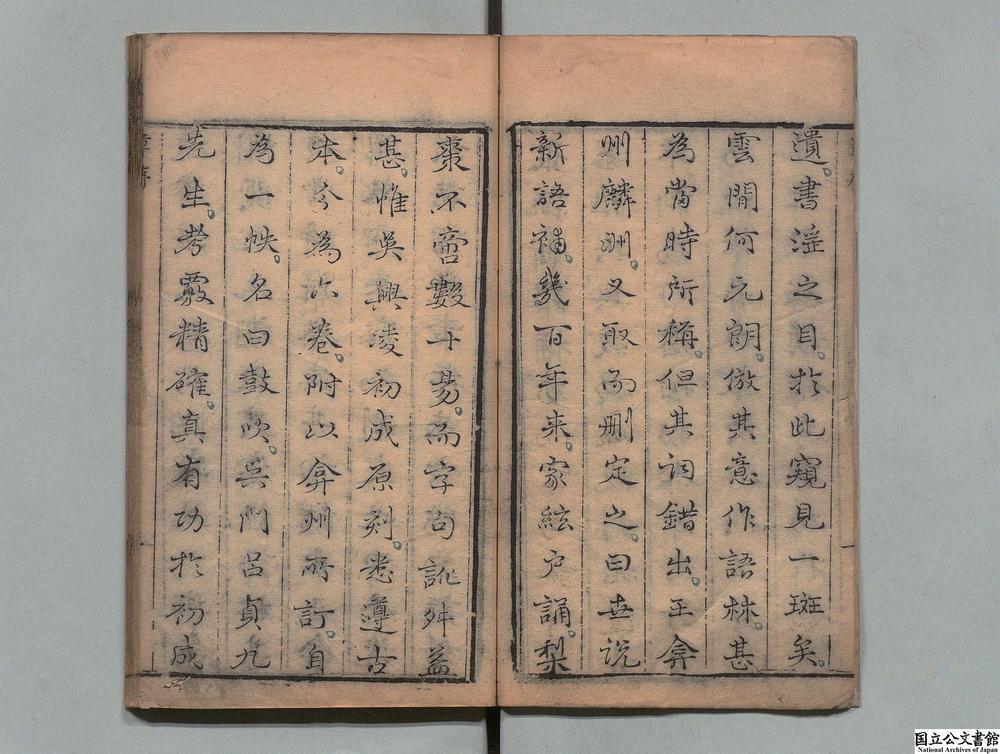 遺書淫之目。於此窺見一斑矣。
雲間何元朗。倣其意作語林。甚
為當時所稱。但其詞錯出。王弇
州麟洲又取而刪定之。曰世說
新語補。幾百年來。家絃戶誦。梨
棗不啻數十易。而字句訛舛益
甚。惟吳興淩初成原刻。悉遵古
本。分為六卷。附以弇州所訂。自
為一帙。名曰鼓吹。吳門呂貞九
先生。考覈精確。真有功於初成
国立公文書館
National Archives of Japan